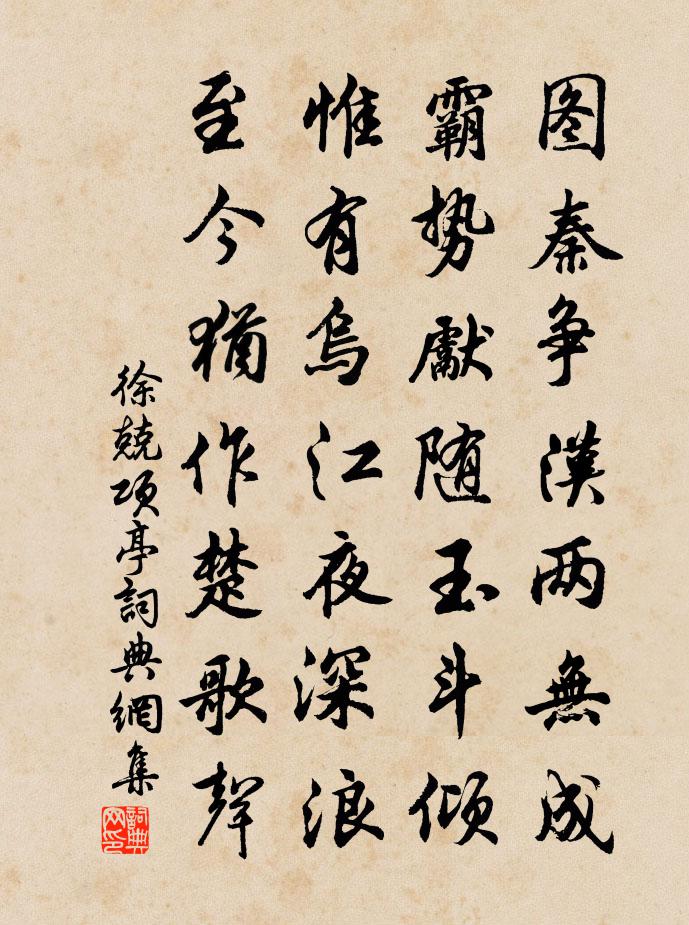 图秦争漢两無成
霸势獻随玉斗倾
惟有烏江夜深浪
至今猶作楚歌聲
徐兢项亭詞典網集
詞典网印